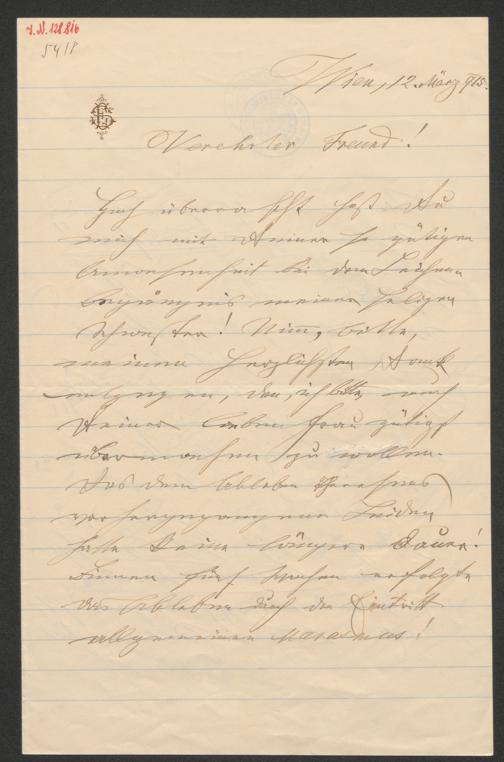 I.N. 128.816
5418
Wien, 12. März 915.
Verehrter Freund!
Hoch überrascht hast Du
mich mit Deiner so gütigen
Anwesenheit bei dem Leichen
begängnis meiner seligen
Schwester! Nimm, bitte,
meinen herzlichsten Dank
entgegen, den, ich bitte, auch
Deiner lieben Frau gütigst
übermachen zu wollen.
Das dem Ableben Theresens
vorhergegangene Leiden
hatte keine längere Dauer!
Binnen fünf Wochen erfolgte
das Ableben durch den Eintritt
allgemeinen Marasmus!